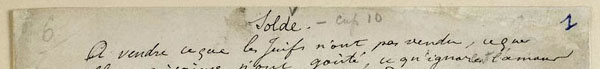 6
Solde. 1
A vendre ce que les Juifs n'ont pas vendu, ce que
n'ont goûté, ce qu'ignore l'amour